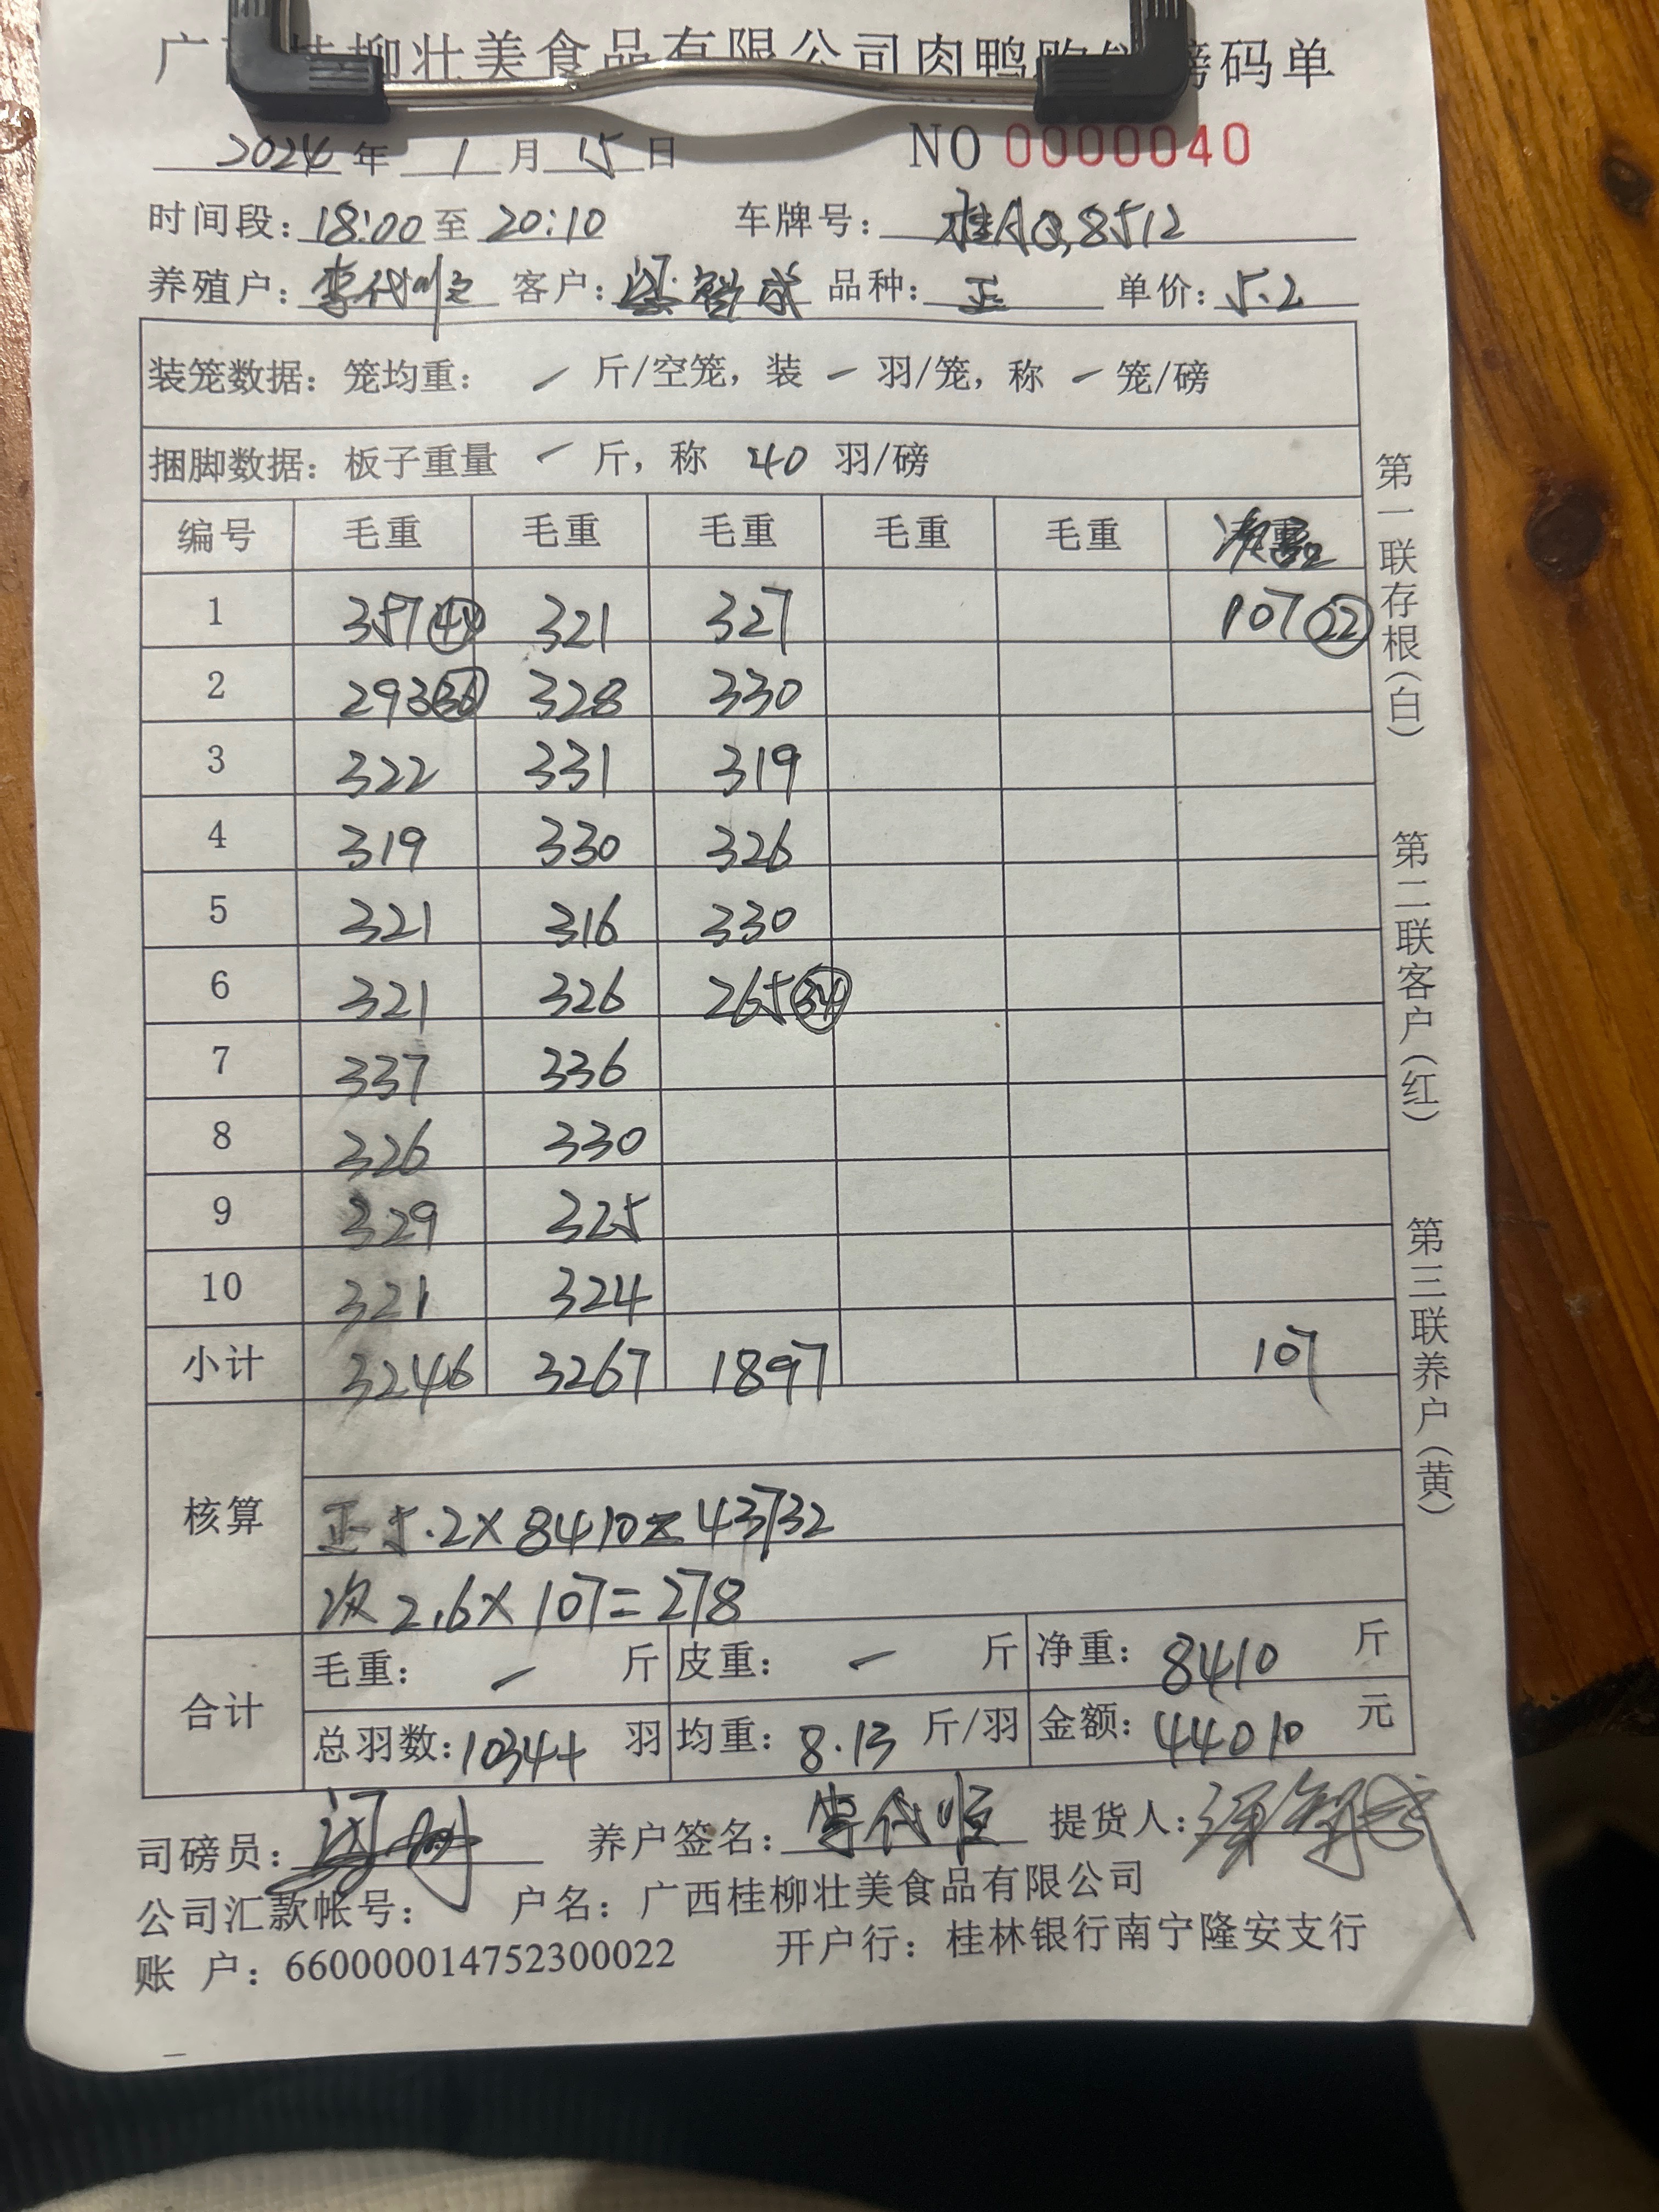 广 桂柳壮美食品有限公司肉鸭购 磅码单
2024年 1月15日 NO 0000040
时间段：18:00至20:10 车牌号：桂AQ8512
养殖户：李代恒 客户：梁智成 品种：正 单价：5.2
装笼数据：笼均重： － 斤/空笼，装 － 羽/笼，称 － 笼/磅
捆脚数据：板子重量 － 斤，称 40 羽/磅
编号 毛重 毛重 毛重 毛重 毛重
1 357(44) 321 327 107(22)
2 293(36) 328 330
3 322 331 319
4 319 330 326
5 321 316 330
6 321 326 265(34)
7 337 336
8 326 330
9 329 325
10 321 324
小计 3246 3267 1897 107
核算
正5.2×8410=43732
次2.6×107=278
合计
毛重： － 斤 皮重： － 斤 净重：8410 斤
总羽数：1034+ 羽 均重：8.13 斤/羽 金额：44010 元
司磅员： 养户签名：李代恒 提货人：梁智成
公司汇款帐号： 户名：广西桂柳壮美食品有限公司
账 户：660000014752300022 开户行：桂林银行南宁隆安支行
第一联存根（白） 第二联客户（红） 第三联养户（黄）